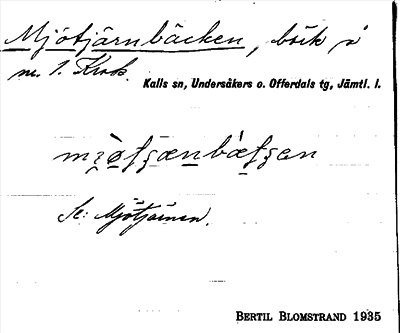 Mjötjärnbäcken, bäck å
nr. 1. Krok.
Kalls sn, Undersåkers o. Offerdals tg, Jämtl. l.
Se: Mjötjärnen.
BERTIL BLOMSTRAND 1935